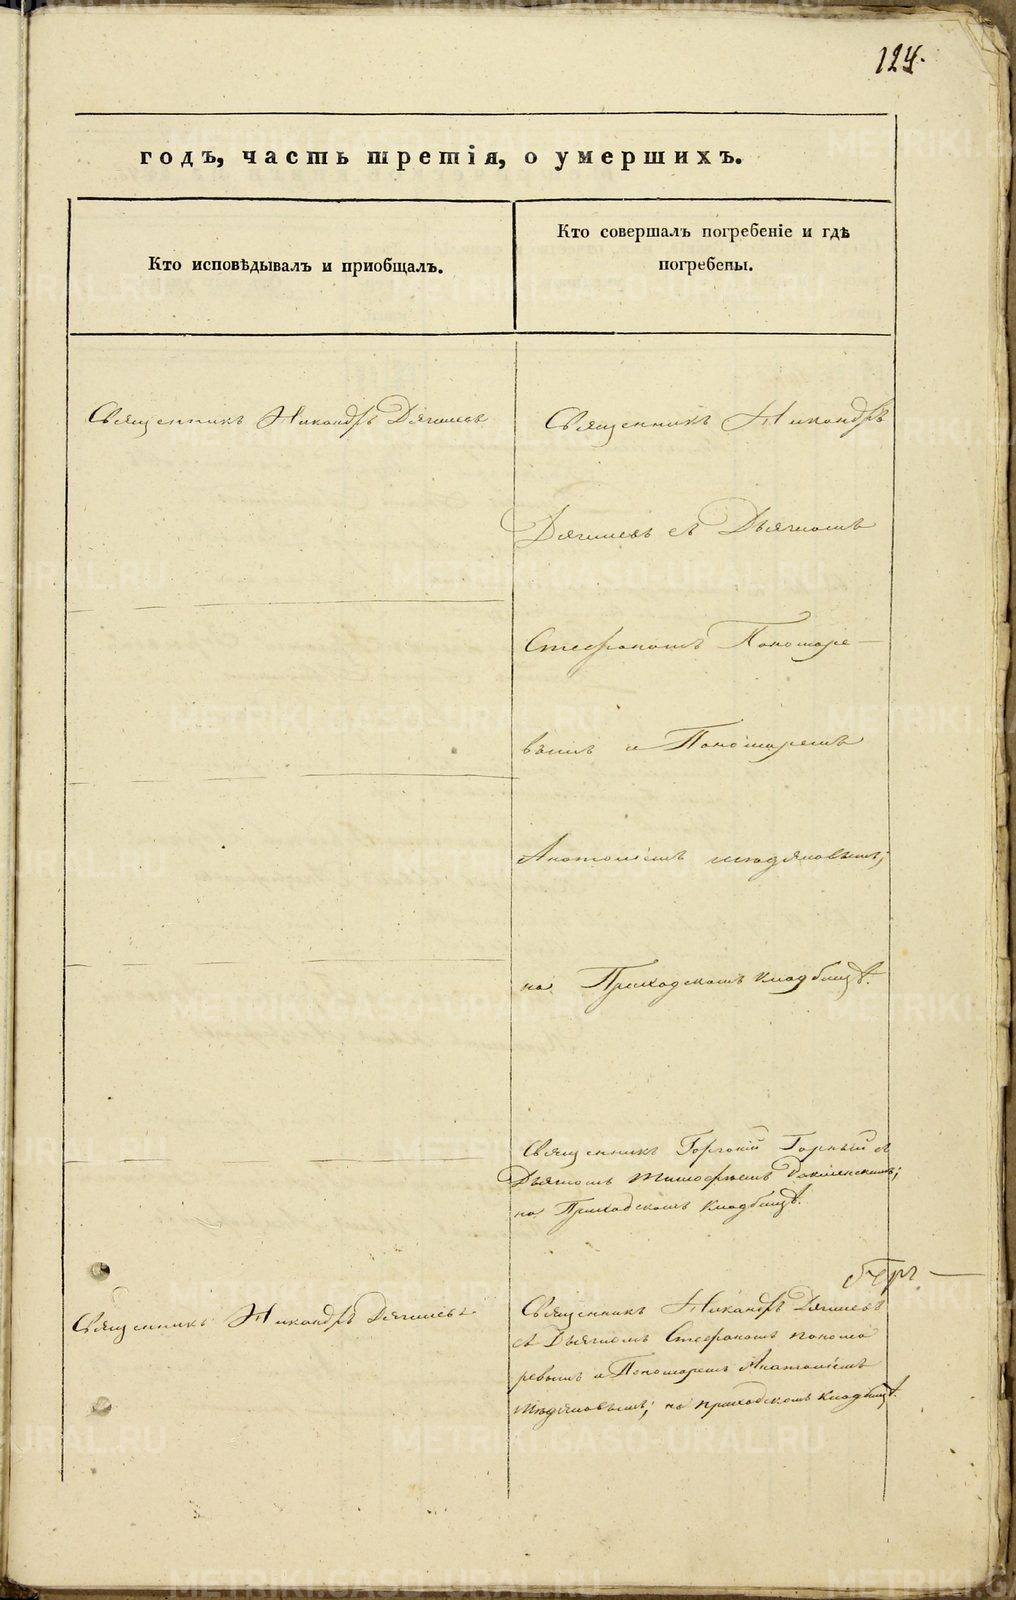 124.
годъ, часть третія, о умершихъ.
Кто исповѣдывалъ и приобщалъ.
Кто совершалъ погребеніе и гдѣ
погребены.
Священникъ Никандръ Дягилевъ
Священникъ Никандръ
Дягилевъ съ Дьячкомъ
Стефаномъ Пономаре-
вымъ и Пономаремъ
Анатоліемъ
на Приходскомъ кладбищѣ.
Священникъ Горгоній Горный съ
Дьячкомъ Тимофѣемъ
на Приходскомъ кладбищѣ.
Священникъ Никандръ Дягилевъ
Священникъ Никандръ Дягилевъ
съ Дьячкомъ Стефаномъ понома
ревымъ и Пономаремъ Анатоліемъ
на приходскомъ кладбищѣ.
METRIKI.GASO-URAL.RU